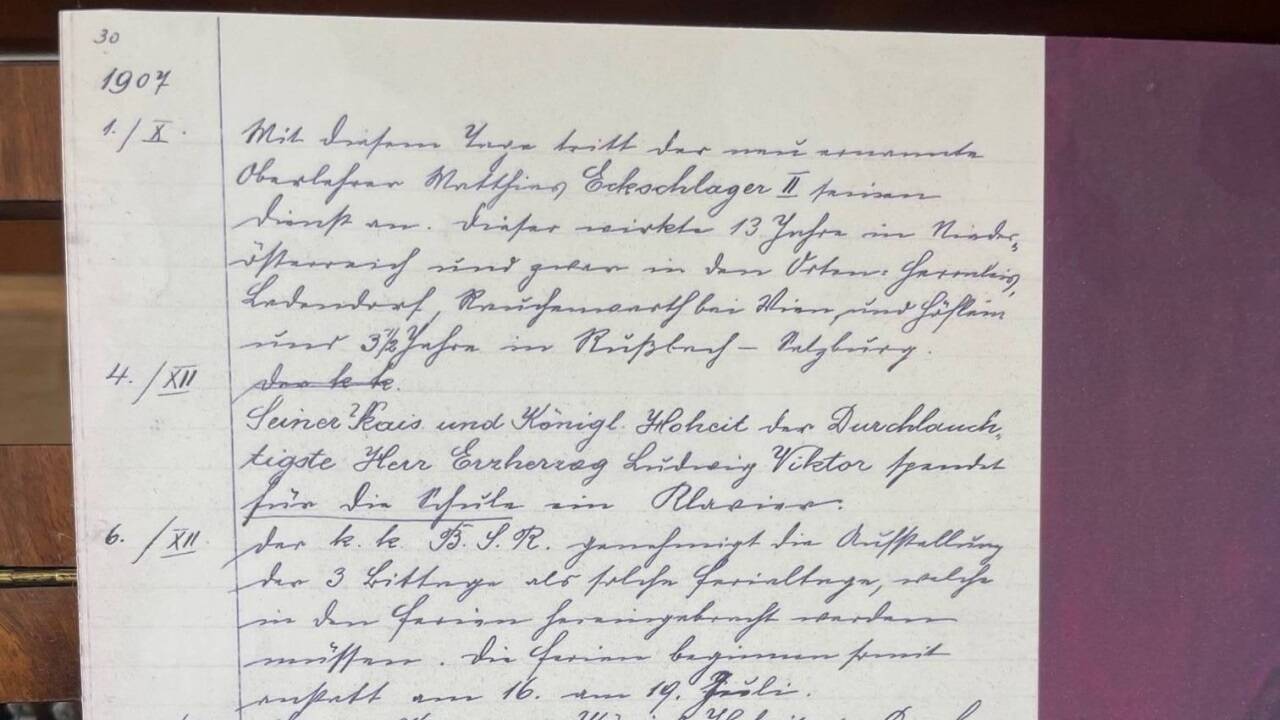 30
1907
1./X. Mit diesem Tage tritt der neu ernannte
Oberlehrer Matthias Eckschlager II seinen
Dienst an. Dieser wirkte 13 Jahre in Nieder-
österreich und zwar in den Orten: Herrnleis,
Ladendorf, Rauchenwarth bei Wien, und Höflein
und 3 1/2 Jahre in Rußbach – Salzburg.
4./XII Der k. k.
Seiner Kais und Königl. Hoheit der Durchlauch-
tigste Herr Erzherzog Ludwig Viktor spendet
für die Schule ein Klavier.
6./XII. Der k. k. B. S. R. genehmigt die Aufstellung
der 3 Bittage als solche Ferialtage, welche
in den Ferien hereingebracht werden
müssen. Die Ferien beginnen somit
anstatt am 16. am 19. Juli.